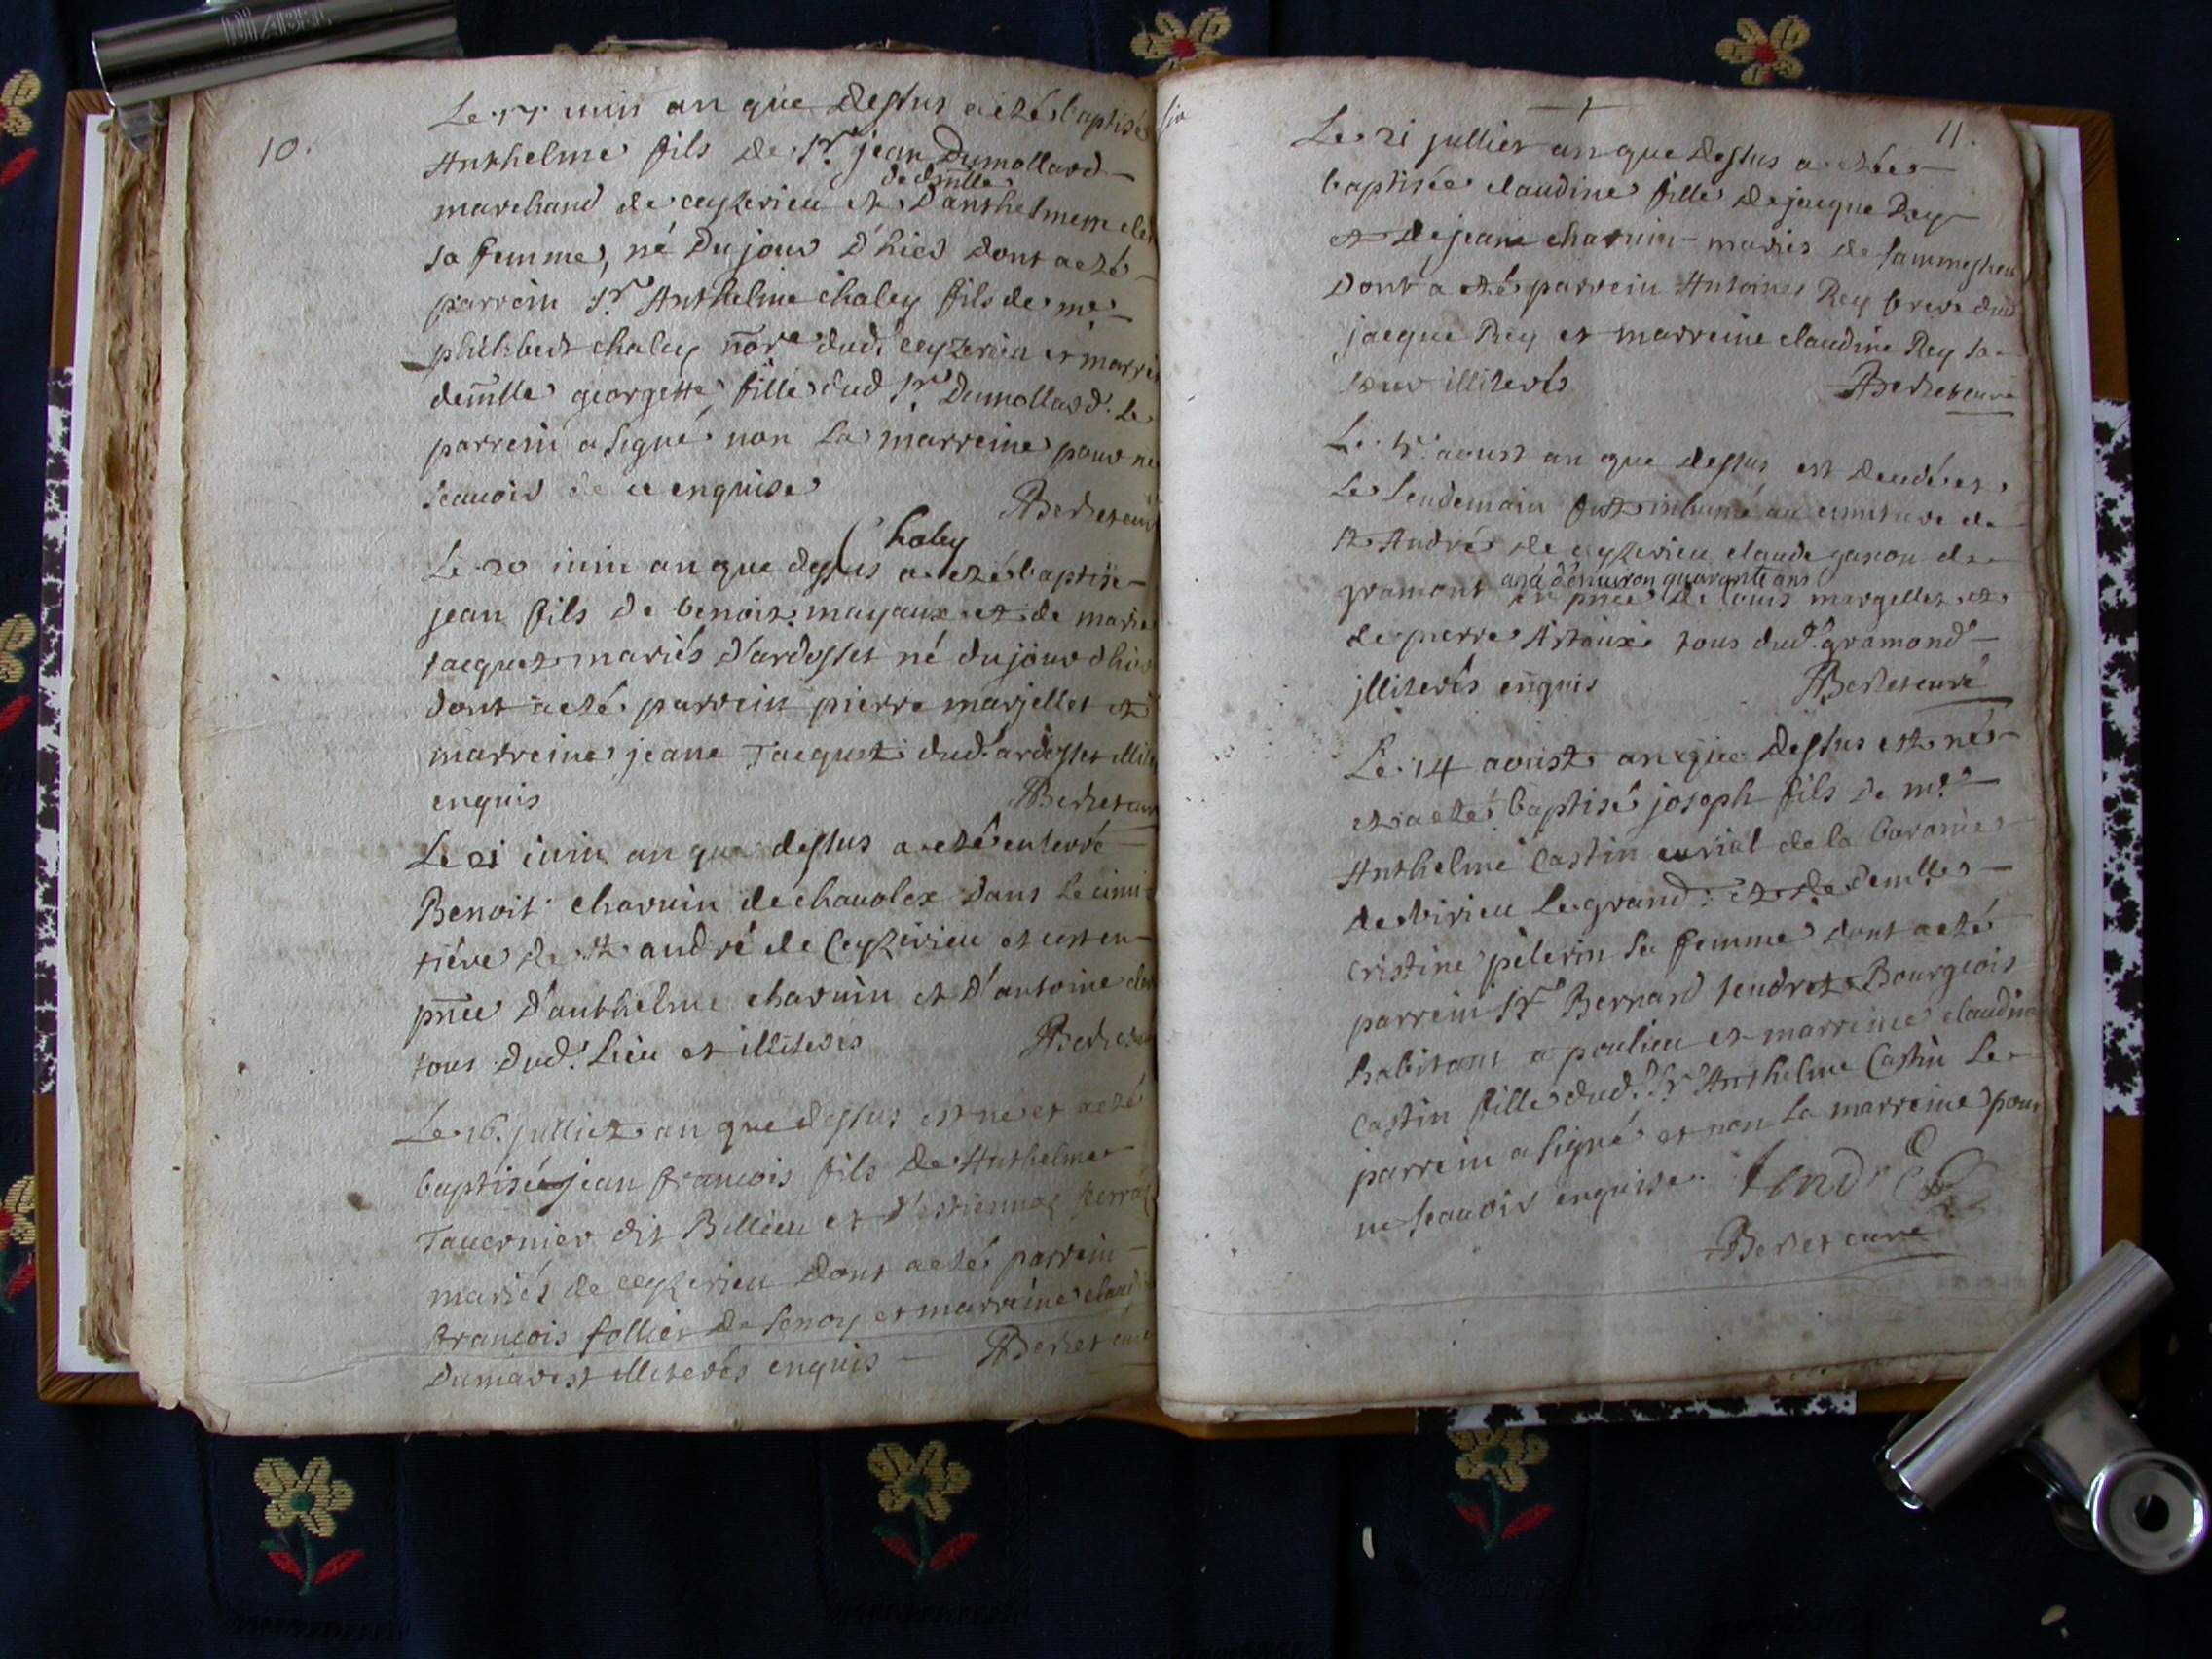 DIZABEL
10.
Le 15 iuin an que dessus a eté baptisé
Anthelme fils de Sr. jean Dumollard
de demlle
marchand de ceyzerieu et D'anthelmette
sa femme, né Dujour D'hier dont a eté
parrein Sr. Anthelme chaley fils de me
philibert chaley nore dud. ceyzerieu et marrei
demlle georgette fille dud Sr Dumollard. Le
parrein a signé non La marreine pour ne
scauoir de ce enquise
Berthet curé
Chaley
Le 20 iuin an que dessus a eté baptisé
jean fils de benoit mayaux et de marie
jacquet mariés d'ardosset né dujour d'hier
dont a eté parrein pierre marjellet et
marreine jeane Jacquet dud. ardosset illite
enquis
Berthet cur
Le 21 iuin an que dessus a eté enterré
Benoit charuin de chauolex dans le cimi
tiére de St andré de Ceyzerieu et cest en
pnce d'anthelme charuin et d'antoine
tous dud. Lieu et illiterés
Berthet
Le 16. julliet an que dessus est né et a eté
baptisé jean francois fils de Anthelme
Tauernier dit Billieu et d'estiennaz
mariés de ceyzerieu dont a eté parrein
francois follier de senoy et marreine claud
Dumarest illiterés enquis
Berthet cur
11.
Le 21 julliet an que dessus a eté
baptisée claudine fille de jacque Rey
et de jeane charuin mariés de
Dont a eté parrein Antoine Rey frere dud
jacque Rey et marreine claudine Rey sa
sœur illiterés
Berthet curé
Le 5. aoust an que dessus est decedé et
Le Lendemain fut inhumé au cimitiere de
St André de ceyzerieu claude gascon de
agé d'enuiron quarante ans
gramont en pnce de Louis margellet et
de pierre Artaux tous dud. gramond
illiterés enquis
Berthet curé
Le 14 aoust an que dessus est né
et a eté baptisé joseph fils de me
Anthelme Castin curial de la baronie
de virieu Le grand et de demlle
cristine pélerin sa femme dont a eté
parrein Sr Bernard tendret Bourgeois
habitant a poulieu et marreine claudine
Castin fille dud. Sr Anthelme Castin Le
parrein a signé et non La marreine pour
ne scauoir enquise. tendret
Berthet curé